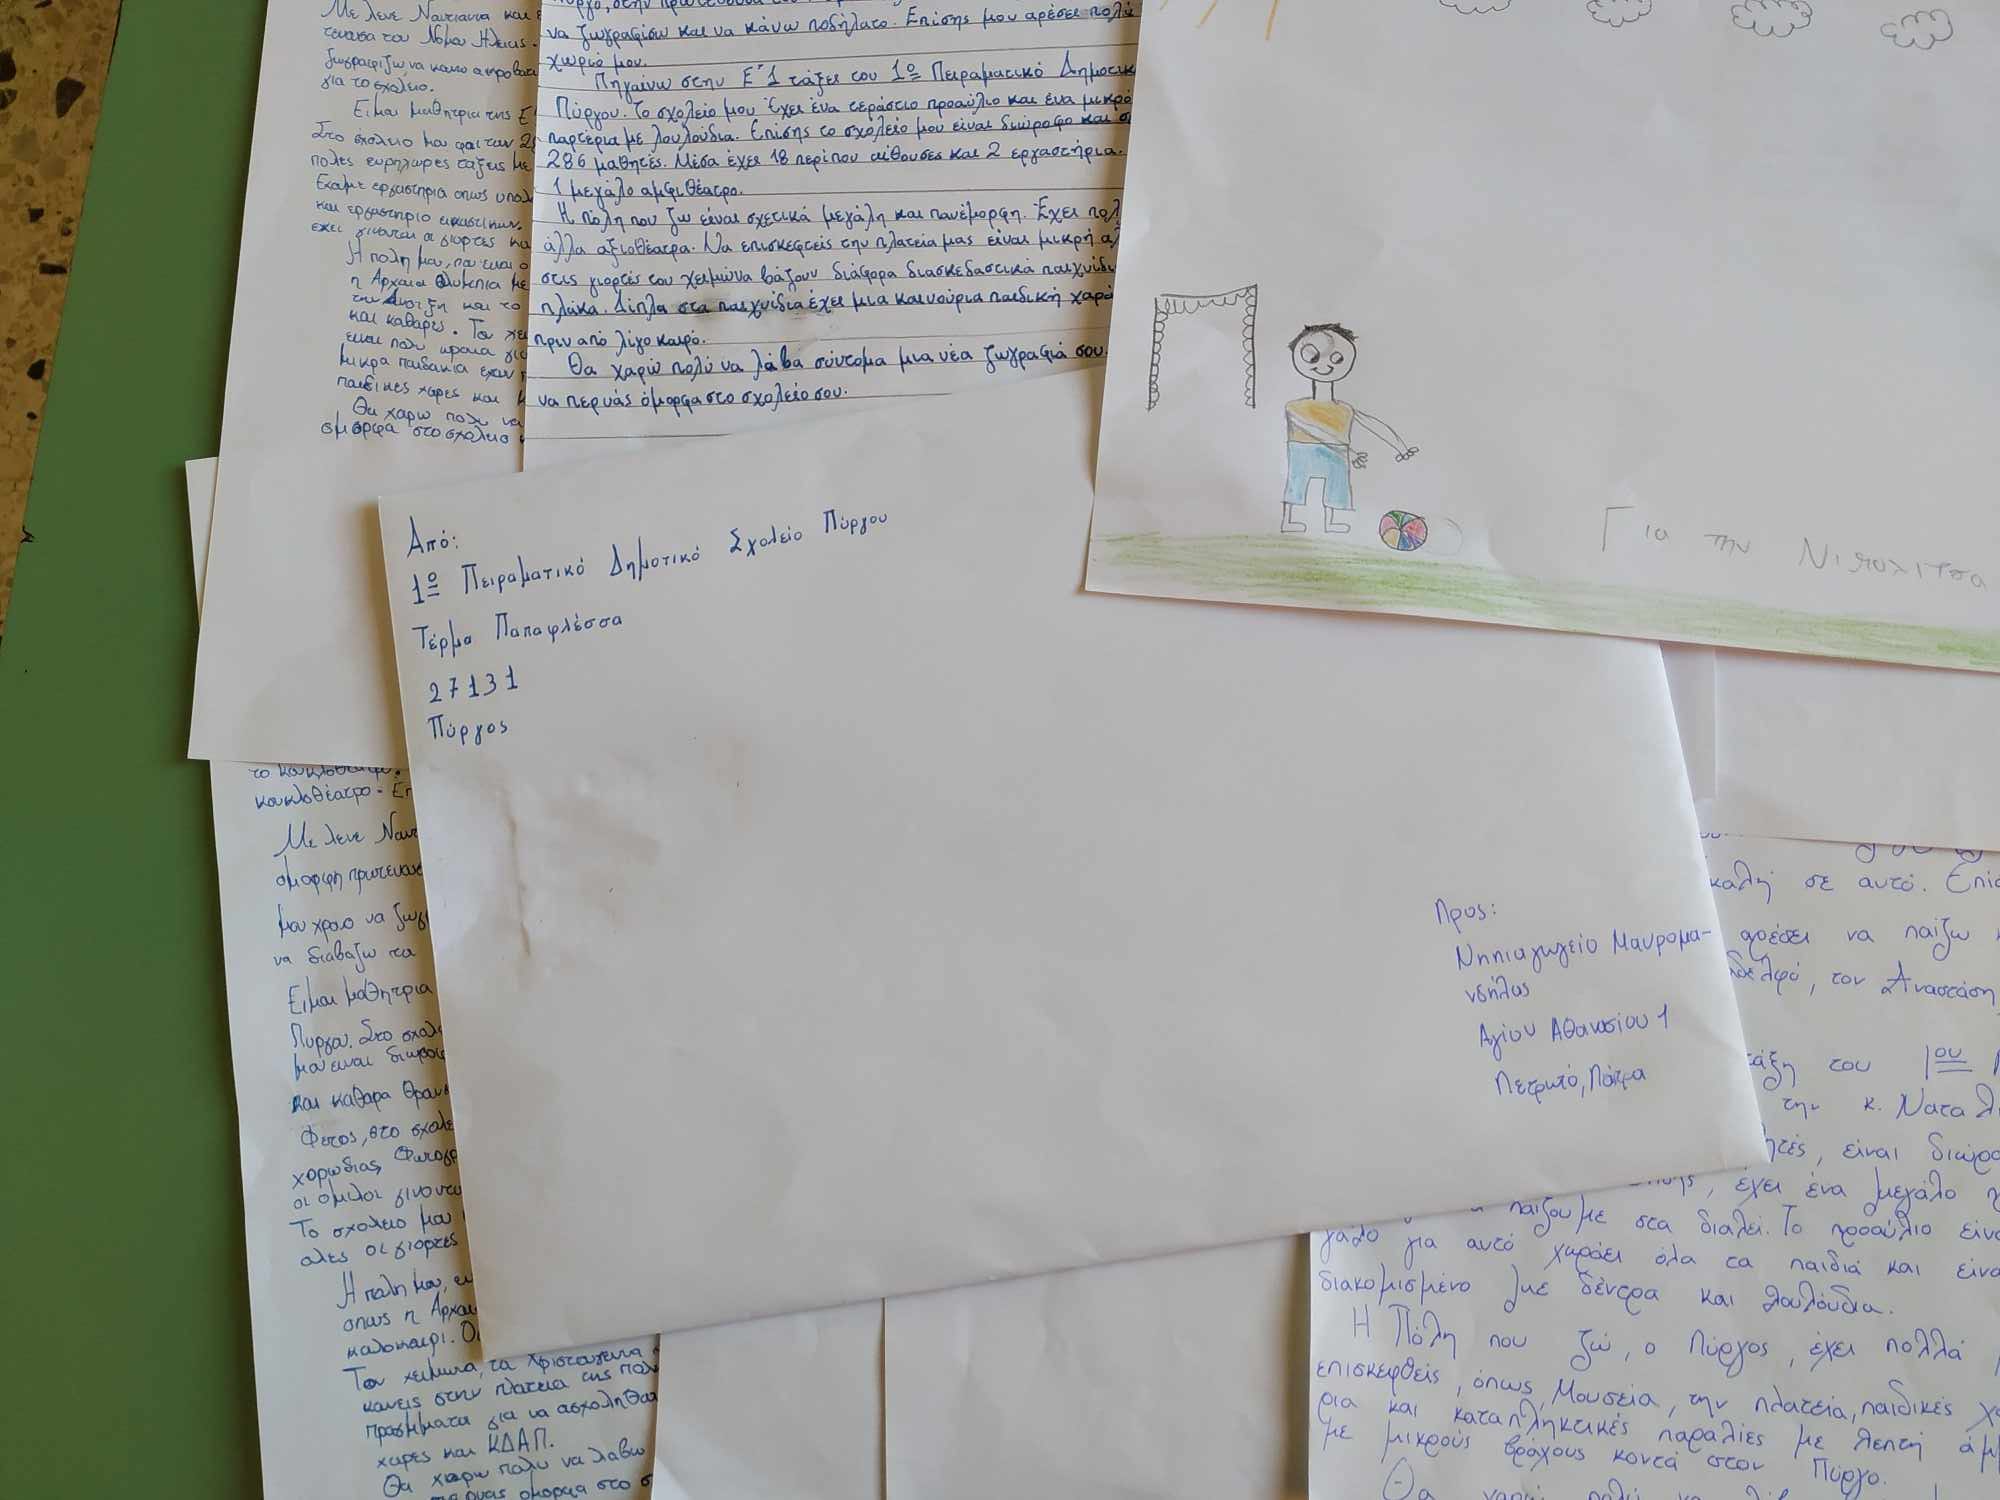 Με λενε Ναυσικα και
τευουσα του Νομου Ηλειας.
ζωγραφιζω, να κανω ακροβατ
για το σχολειο.
Ειμαι μαθητρια της Ε
Στο σχολειο μου φοιτουν 2
πολες ευρηχωρες ταξεις με
Εχουμε εργαστηρια οπως υπολ
και εργαστηριο εικαστικων.
εκει γινονται οι γιορτες κα
Η πολη μου, που ειναι ο
η Αρχαια Ολυμπια με
την Ανοιξη και το
και καθαρες. Τον χει
ειναι πολυ ωραια για
μικρα παιδακια εχουν
παιδικες χαρες και
Θα χαρω πολυ να
ομορφα στο σχολειο
να ζωγραφίσω και να κάνω ποδήλατο. Επίσης μου αρέσει πολύ
χωριό μου.
Πηγαίνω στην Ε΄1 τάξει του 1ο Πειραματικό Δημοτικ
Πύργου. Το σχολείο μου έχει ένα τεράστιο προαύλιο και ένα μικρό
παρτέρια με λουλούδια. Επίσης το σχολείο μου είναι διώροφο και
286 μαθητές. Μέσα έχει 18 περίπου αίθουσες και 2 εργαστήρια.
1 μεγάλο αμφιθέατρο.
Η πόλη που ζω είναι σχετικά μεγάλη και πανέμορφη. Έχει πολ
άλλα αξιοθέατρα. Να επισκεφτείς την πλατεία μας είναι μικρή αλ
στις γιορτές του χειμώνα βάζουν διάφορα διασκεδαστικά παιχνίδι
πλάκα. Δίπλα στα παιχνίδια έχει μια καινούρια παιδική χαρά
πριν από λίγο καιρό.
Θα χαρώ πολύ να λάβα σύντομα μια νέα ζωγραφιά σου.
να περνάς όμορφα στο σχολείο σου.
Για την Νιπολιτσα
Από:
1ο Πειραματικό Δημοτικό Σχολείο Πύργου
Τέρμα Παπαφλέσσα
27131
Πύργος
Προς:
Νηπιαγωγείο Μαυρομα-
νδήλας
Αγίου Αθανασίου 1
Πετρωτό, Πάτρα
το κουκλοθέατρο.
κουκλοθέατρο. Επ
Με λενε Ναυσ
ομορφη πρωτευουσ
μου χρονο να ζωγ
να διαβαζω τα
Ειμαι μαθητρια
Πυργου. Στο σχολ
μου ειναι διωροφ
και καθαρα θραν
Φετος, στο σχολε
χορωδιας, Φωτογρ
οι ομιλοι γινοντ
Το σχολειο μου
ολες οι γιορτες
Η πολη μου, ε
οπως η Αρχαι
καλοκαιρι.
Τον χειμωνα, τα Χριστουγεννα
κανεις στην πλατεια της πολ
πραγματα για να ασχοληθου
χαρες και ΚΔΑΠ.
Θα χαρω πολυ να λαβω
περνας ομορφα στο σ
καλή σε αυτό. Επίσ
αρέσει να παίζω
δελφό, τον Αναστάση,
τάξη του 1ου
την κ. Ναταλί
ητές, είναι διώρο
έχει ένα μεγάλο
παίζουμε στα διαλεί. Το προαύλιο είνα
γάλο για αυτό χωράει όλα τα παιδιά και είνα
διακομισμένο με δέντρα και λουλούδια.
Η Πόλη που ζώ, ο Πύργος, έχει πολλά
επισκεφθείς, όπως, Μουσεία, την πλατεία, παιδικές χ
ρια και καταπληκτικές παραλίες με λεπτή άμ
με μικρούς βράχους κοντά στον Πύργο.
Θα χαρώ πολύ να